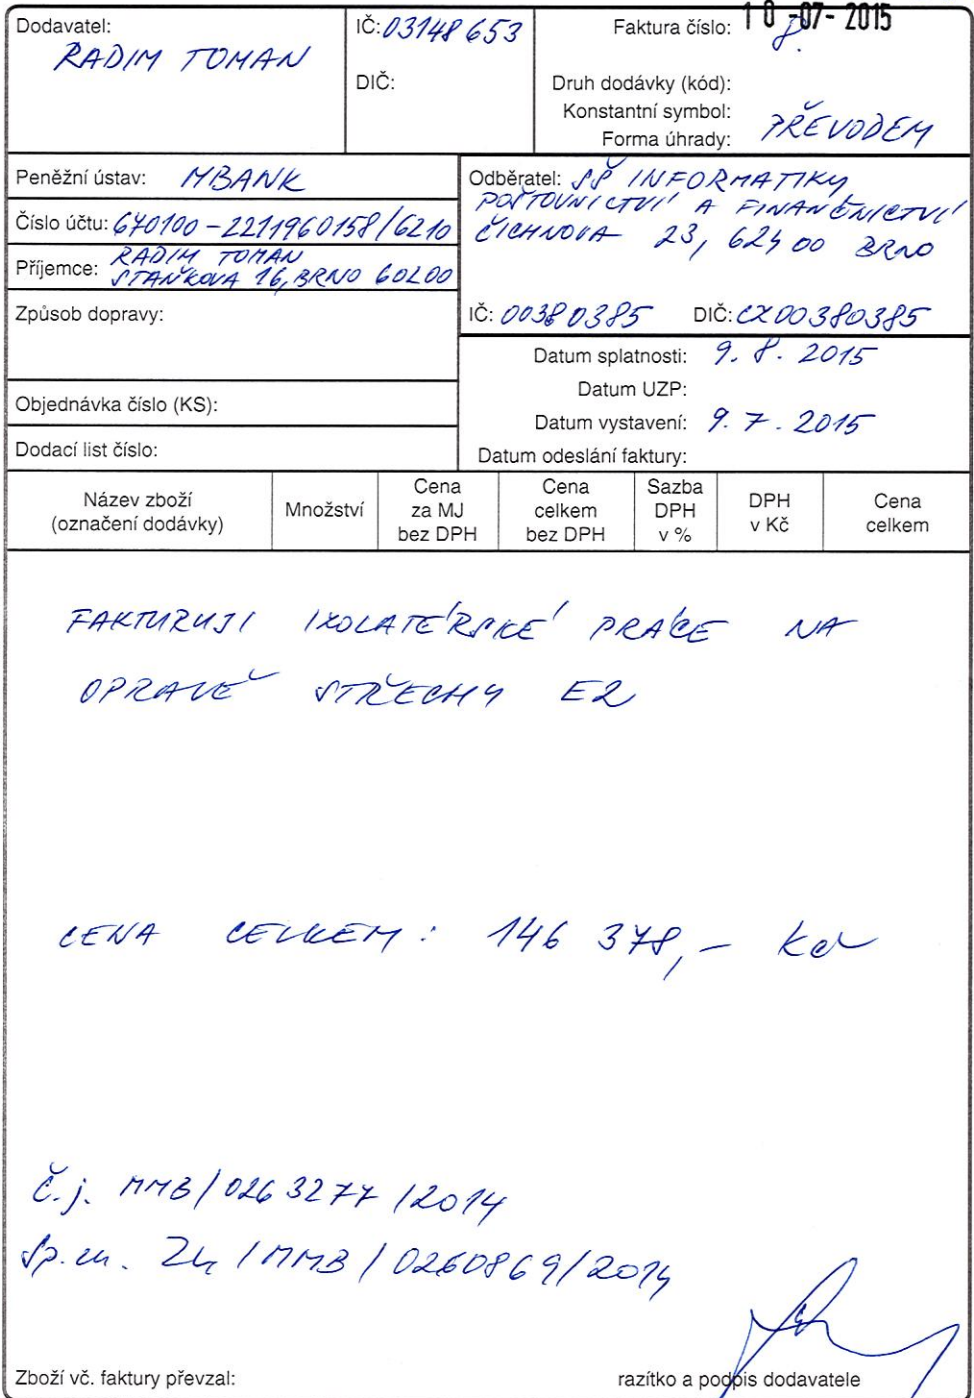 10 -07- 2015
Dodavatel: RADIM TOMAN
IČ: 03148653
DIČ:
Faktura číslo: 8.
Druh dodávky (kód):
Konstantní symbol:
Forma úhrady: PŘEVODEM
Peněžní ústav: MBANK
Číslo účtu: 670100-2211960158/6210
Příjemce: RADIM TOMAN
STAŇKOVA 16, BRNO 60200
Způsob dopravy:
Objednávka číslo (KS):
Dodací list číslo:
Odběratel: SŠ INFORMATIKY
POŠTOVNICTVÍ A FINANČNICTVÍ
ČICHNOVA 23, 624 00 BRNO
IČ: 00380385 DIČ: CZ00380385
Datum splatnosti: 9. 8. 2015
Datum UZP:
Datum vystavení: 9. 7. 2015
Datum odeslání faktury:
Název zboží
(označení dodávky)
Množství
Cena
za MJ
bez DPH
Cena
celkem
bez DPH
Sazba
DPH
v %
DPH
v Kč
Cena
celkem
FAKTURUJI IZOLATÉRSKÉ PRÁCE NA
OPRAVĚ STŘECHY E2
CENA CELKEM: 146 378,- Kč
Č.j. MMB/0263277/2014
Sp.zn. ZN/MMB/0260869/2014
Zboží vč. faktury převzal:
razítko a podpis dodavatele